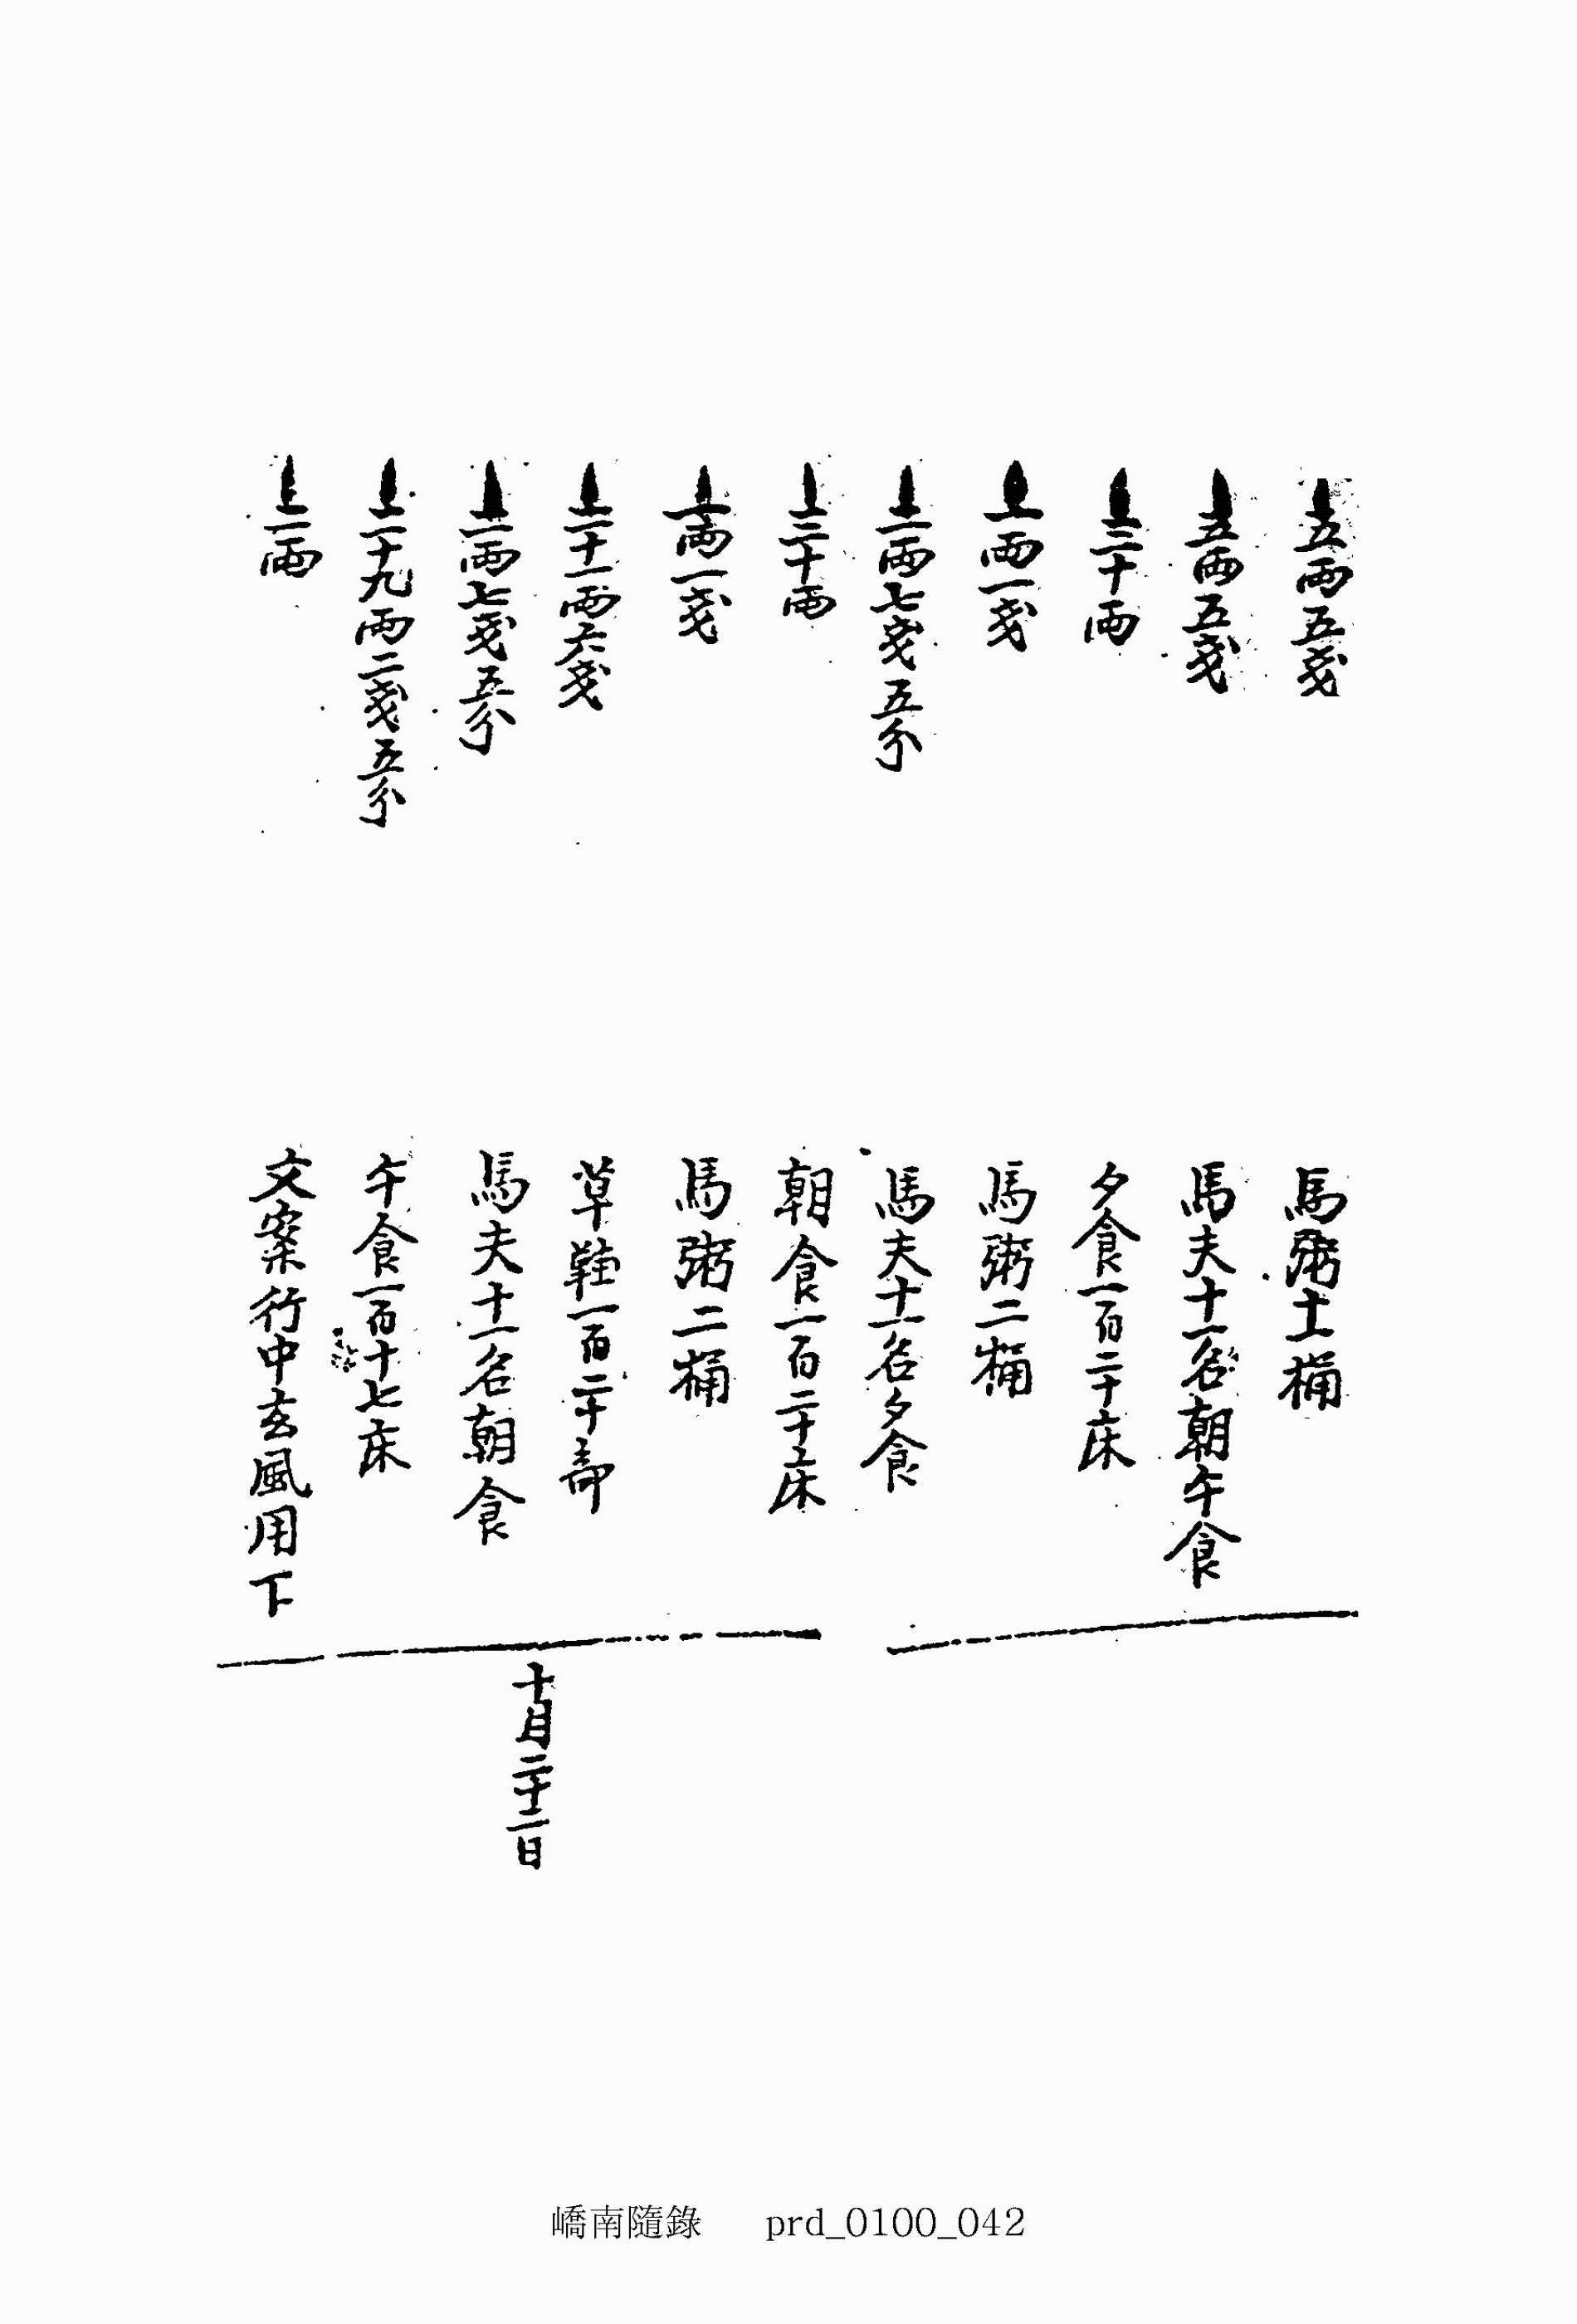 五兩五戔 馬粥十一桶
五兩五戔 馬夫十一名朝午食
三十兩 夕食一百二十床
一兩一戔 馬粥二桶
二兩七戔五分 馬夫十一名夕食
三十兩 朝食一百二十床
一兩一戔 馬粥二桶
二十一兩六戔 草鞋一百二十
二兩七戔五分 馬夫十一名朝食
二十九兩二戔五分 午食一百十七床
二兩 文案行中玄風用下
十月二十二日
嶠南隨錄 prd_0100_042